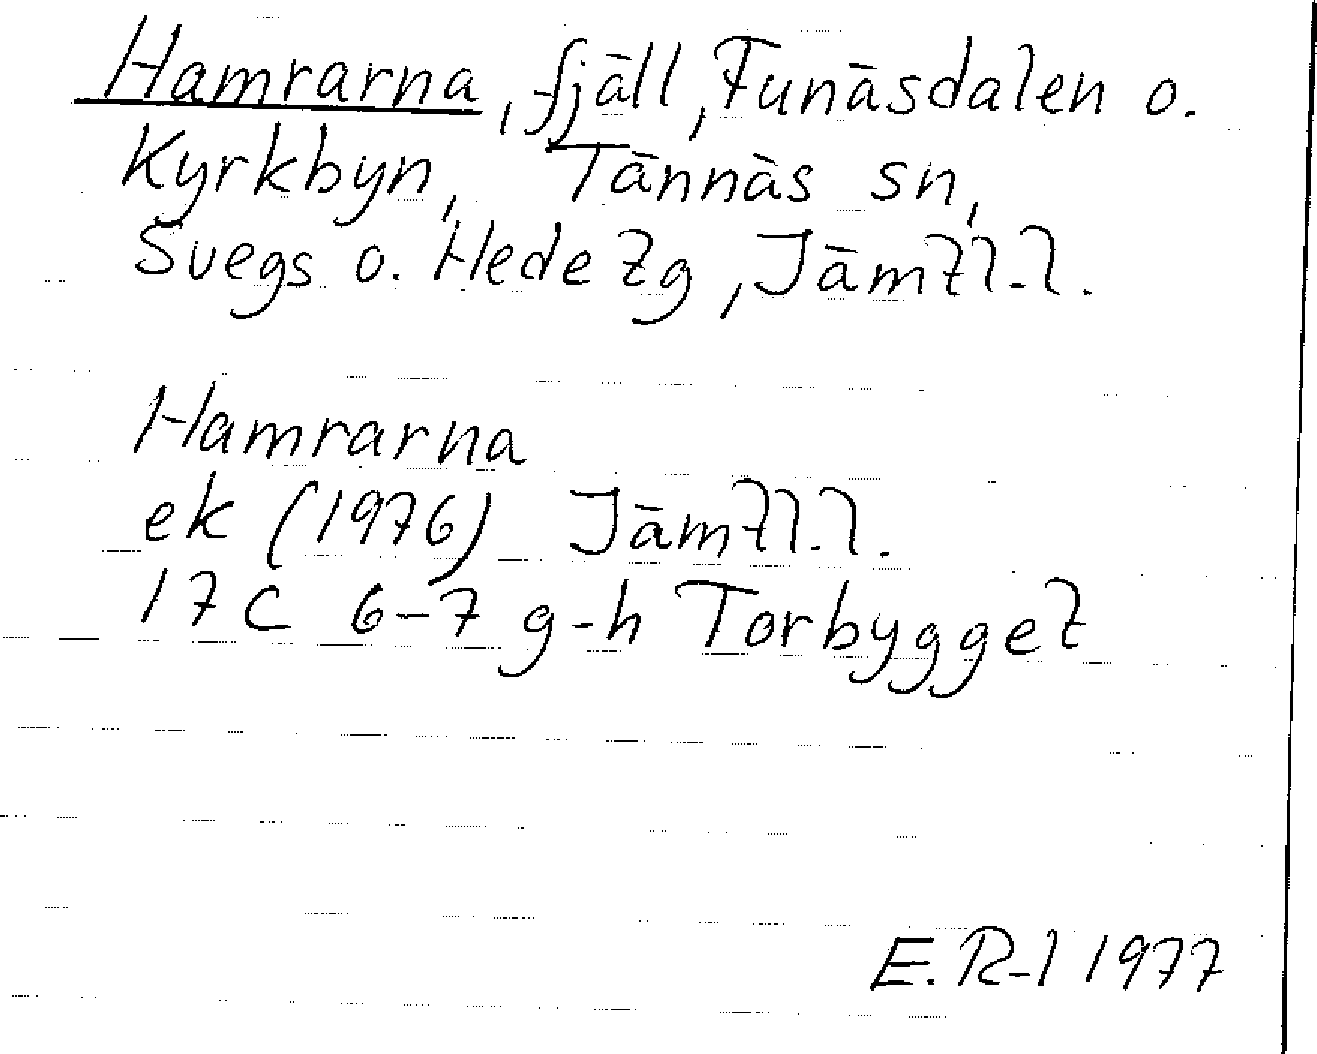 Hamrarna, fjäll, Funäsdalen o.
Kyrkbyn, Tännäs sn,
Svegs o. Hede tg, Jämtl.l.
Hamrarna
ek (1976) Jämtl.l.
17C 6-7 g-h Torbygget
E.R-l 1977